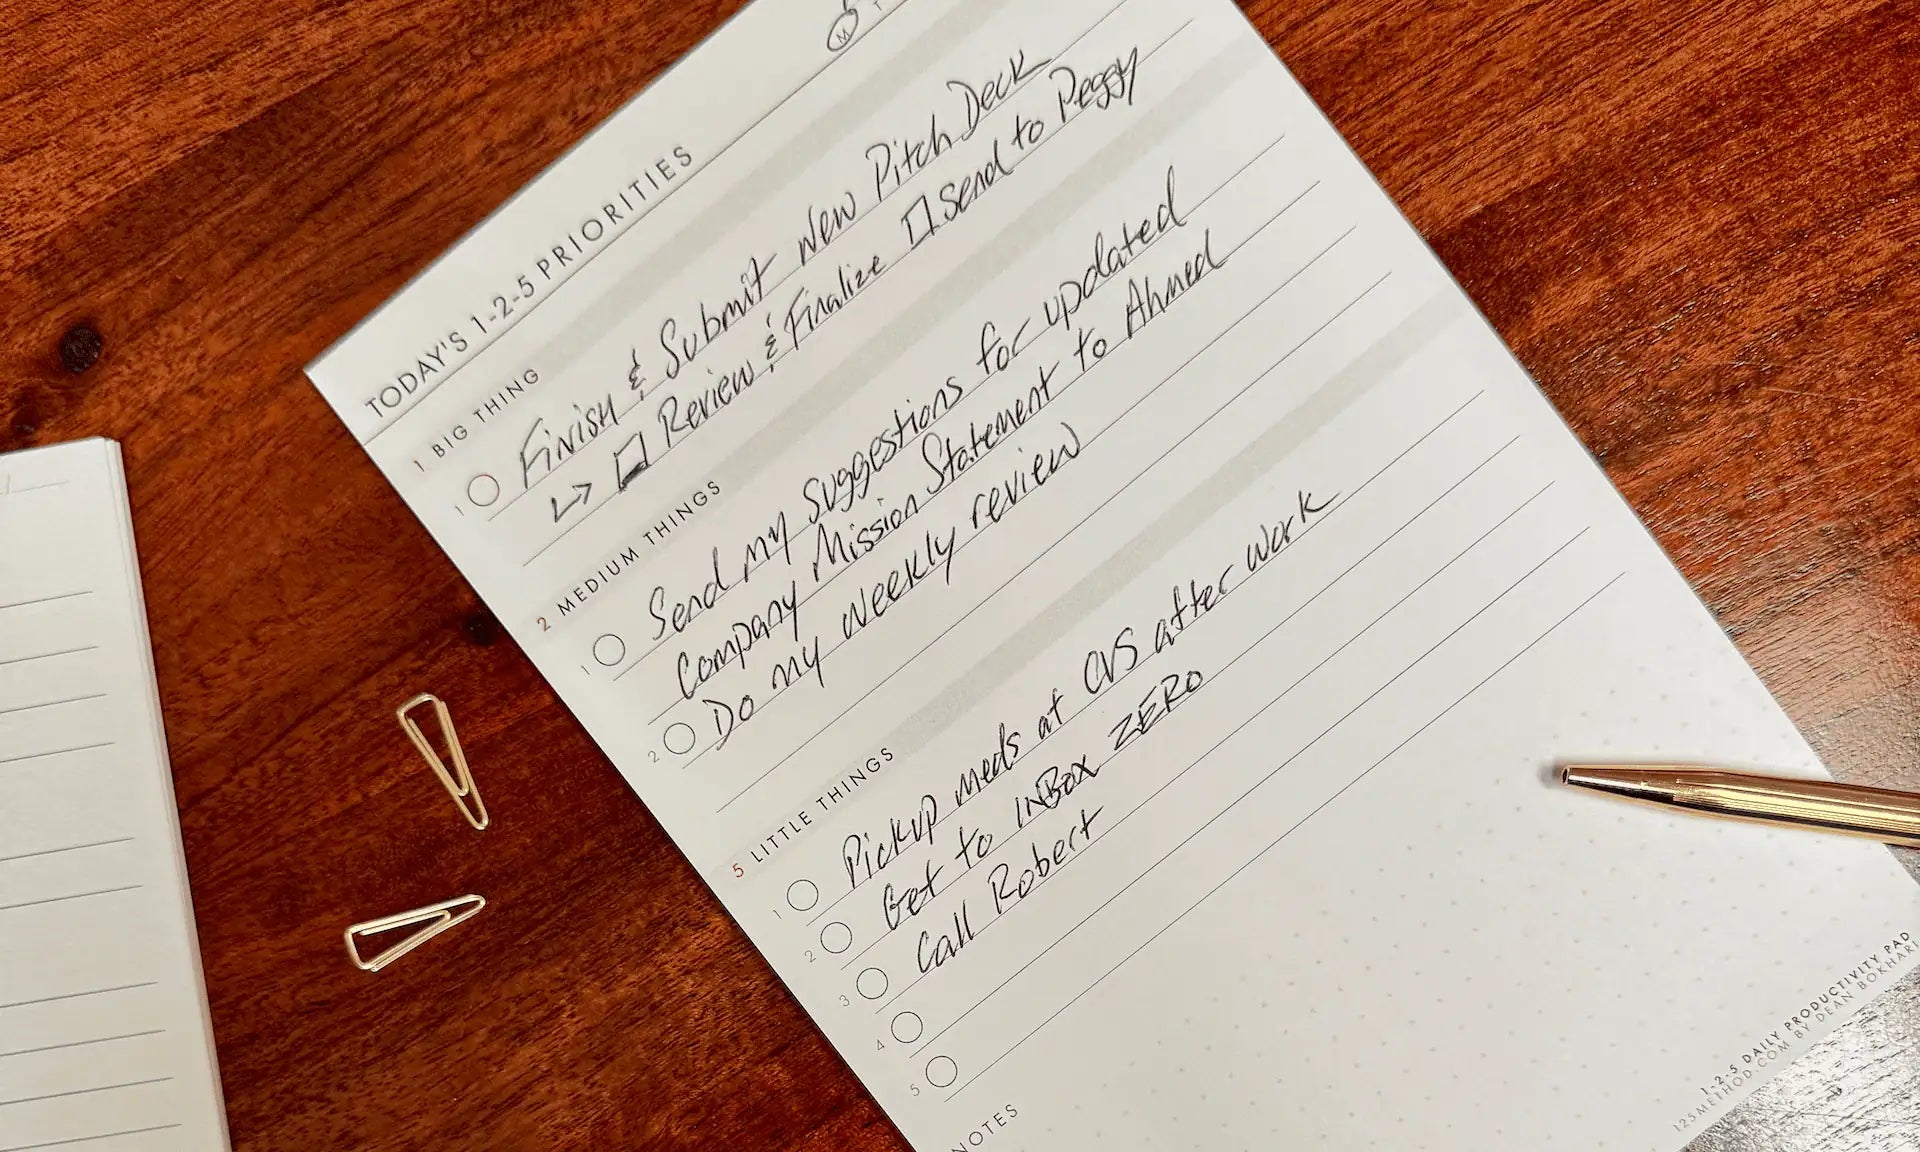 M T
TODAY'S 1-2-5 PRIORITIES
1 BIG THING
1 Finish & Submit New Pitch Deck
↳ □ Review & Finalize □ Send to Peggy
2 MEDIUM THINGS
1 Send my suggestions for updated
Company Mission Statement to Ahmed
2 Do my weekly review
5 LITTLE THINGS
1 Pickup meds at CVS after work
2 Get to INBOX ZERO
3 Call Robert
4
5
NOTES
1-2-5 DAILY PRODUCTIVITY PAD
125METHOD.COM BY DEAN BOKHARI